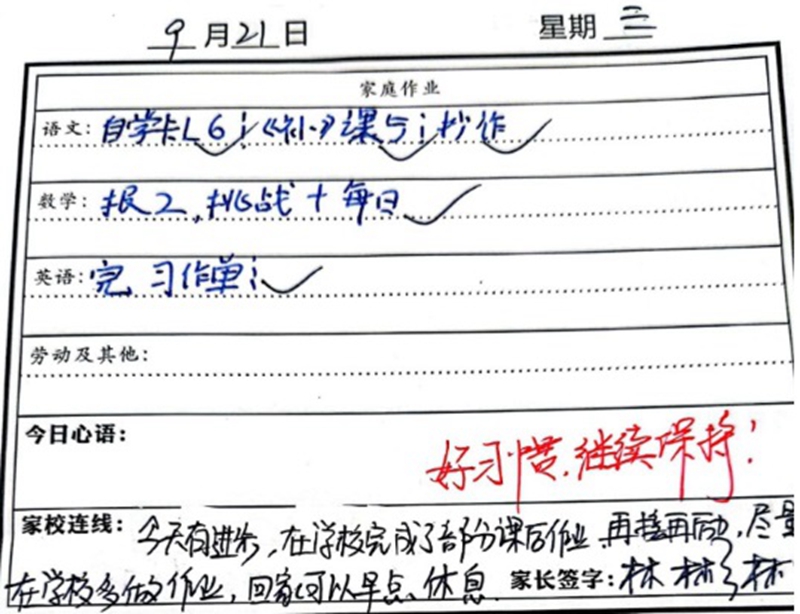 9月21日 星期三
家庭作业
语文：自学卡L6；《补》课5；抄作
数学：报2，挑战+每日
英语：完习作单；
劳动及其他：
今日心语：
好习惯，继续保持！
家校连线：今天有进步，在学校完成了部分课后作业，再接再厉，尽量
在学校多做作业，回家可以早点休息． 家长签字：林林